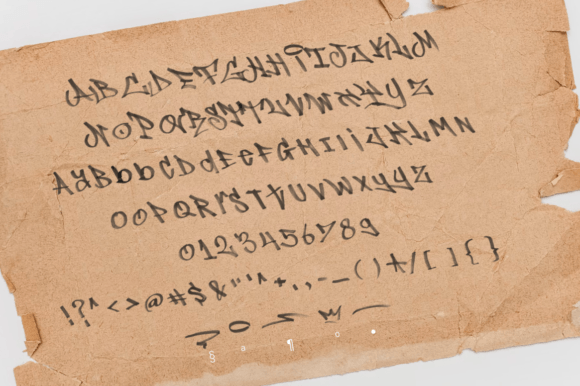 ABCDEFGHHiIJJKLM
NOPQRSTTUVWXYYZ
AaBbbCDdEeFGHIIiJKLMN
OOPQRrSTtUVWXYYZ
0123456789
!?^<>@#$&"''^+.,-_()*/[]{}
§ ¶